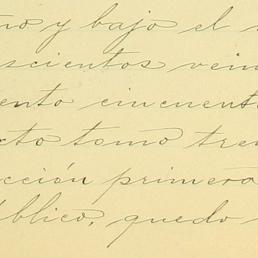 no y bajo el
scientos vein
ento cincuent
cto tomo tre
cción primera
blico, quedo